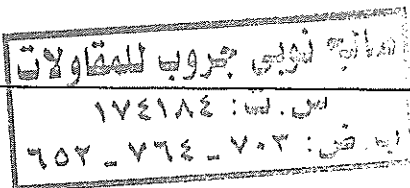 هانى نوبى جروب للمقاولات
س.ت: ١٧٤١٨٤
ب.ض: ٧٠٣ - ٧٦٤ - ٦٥٢